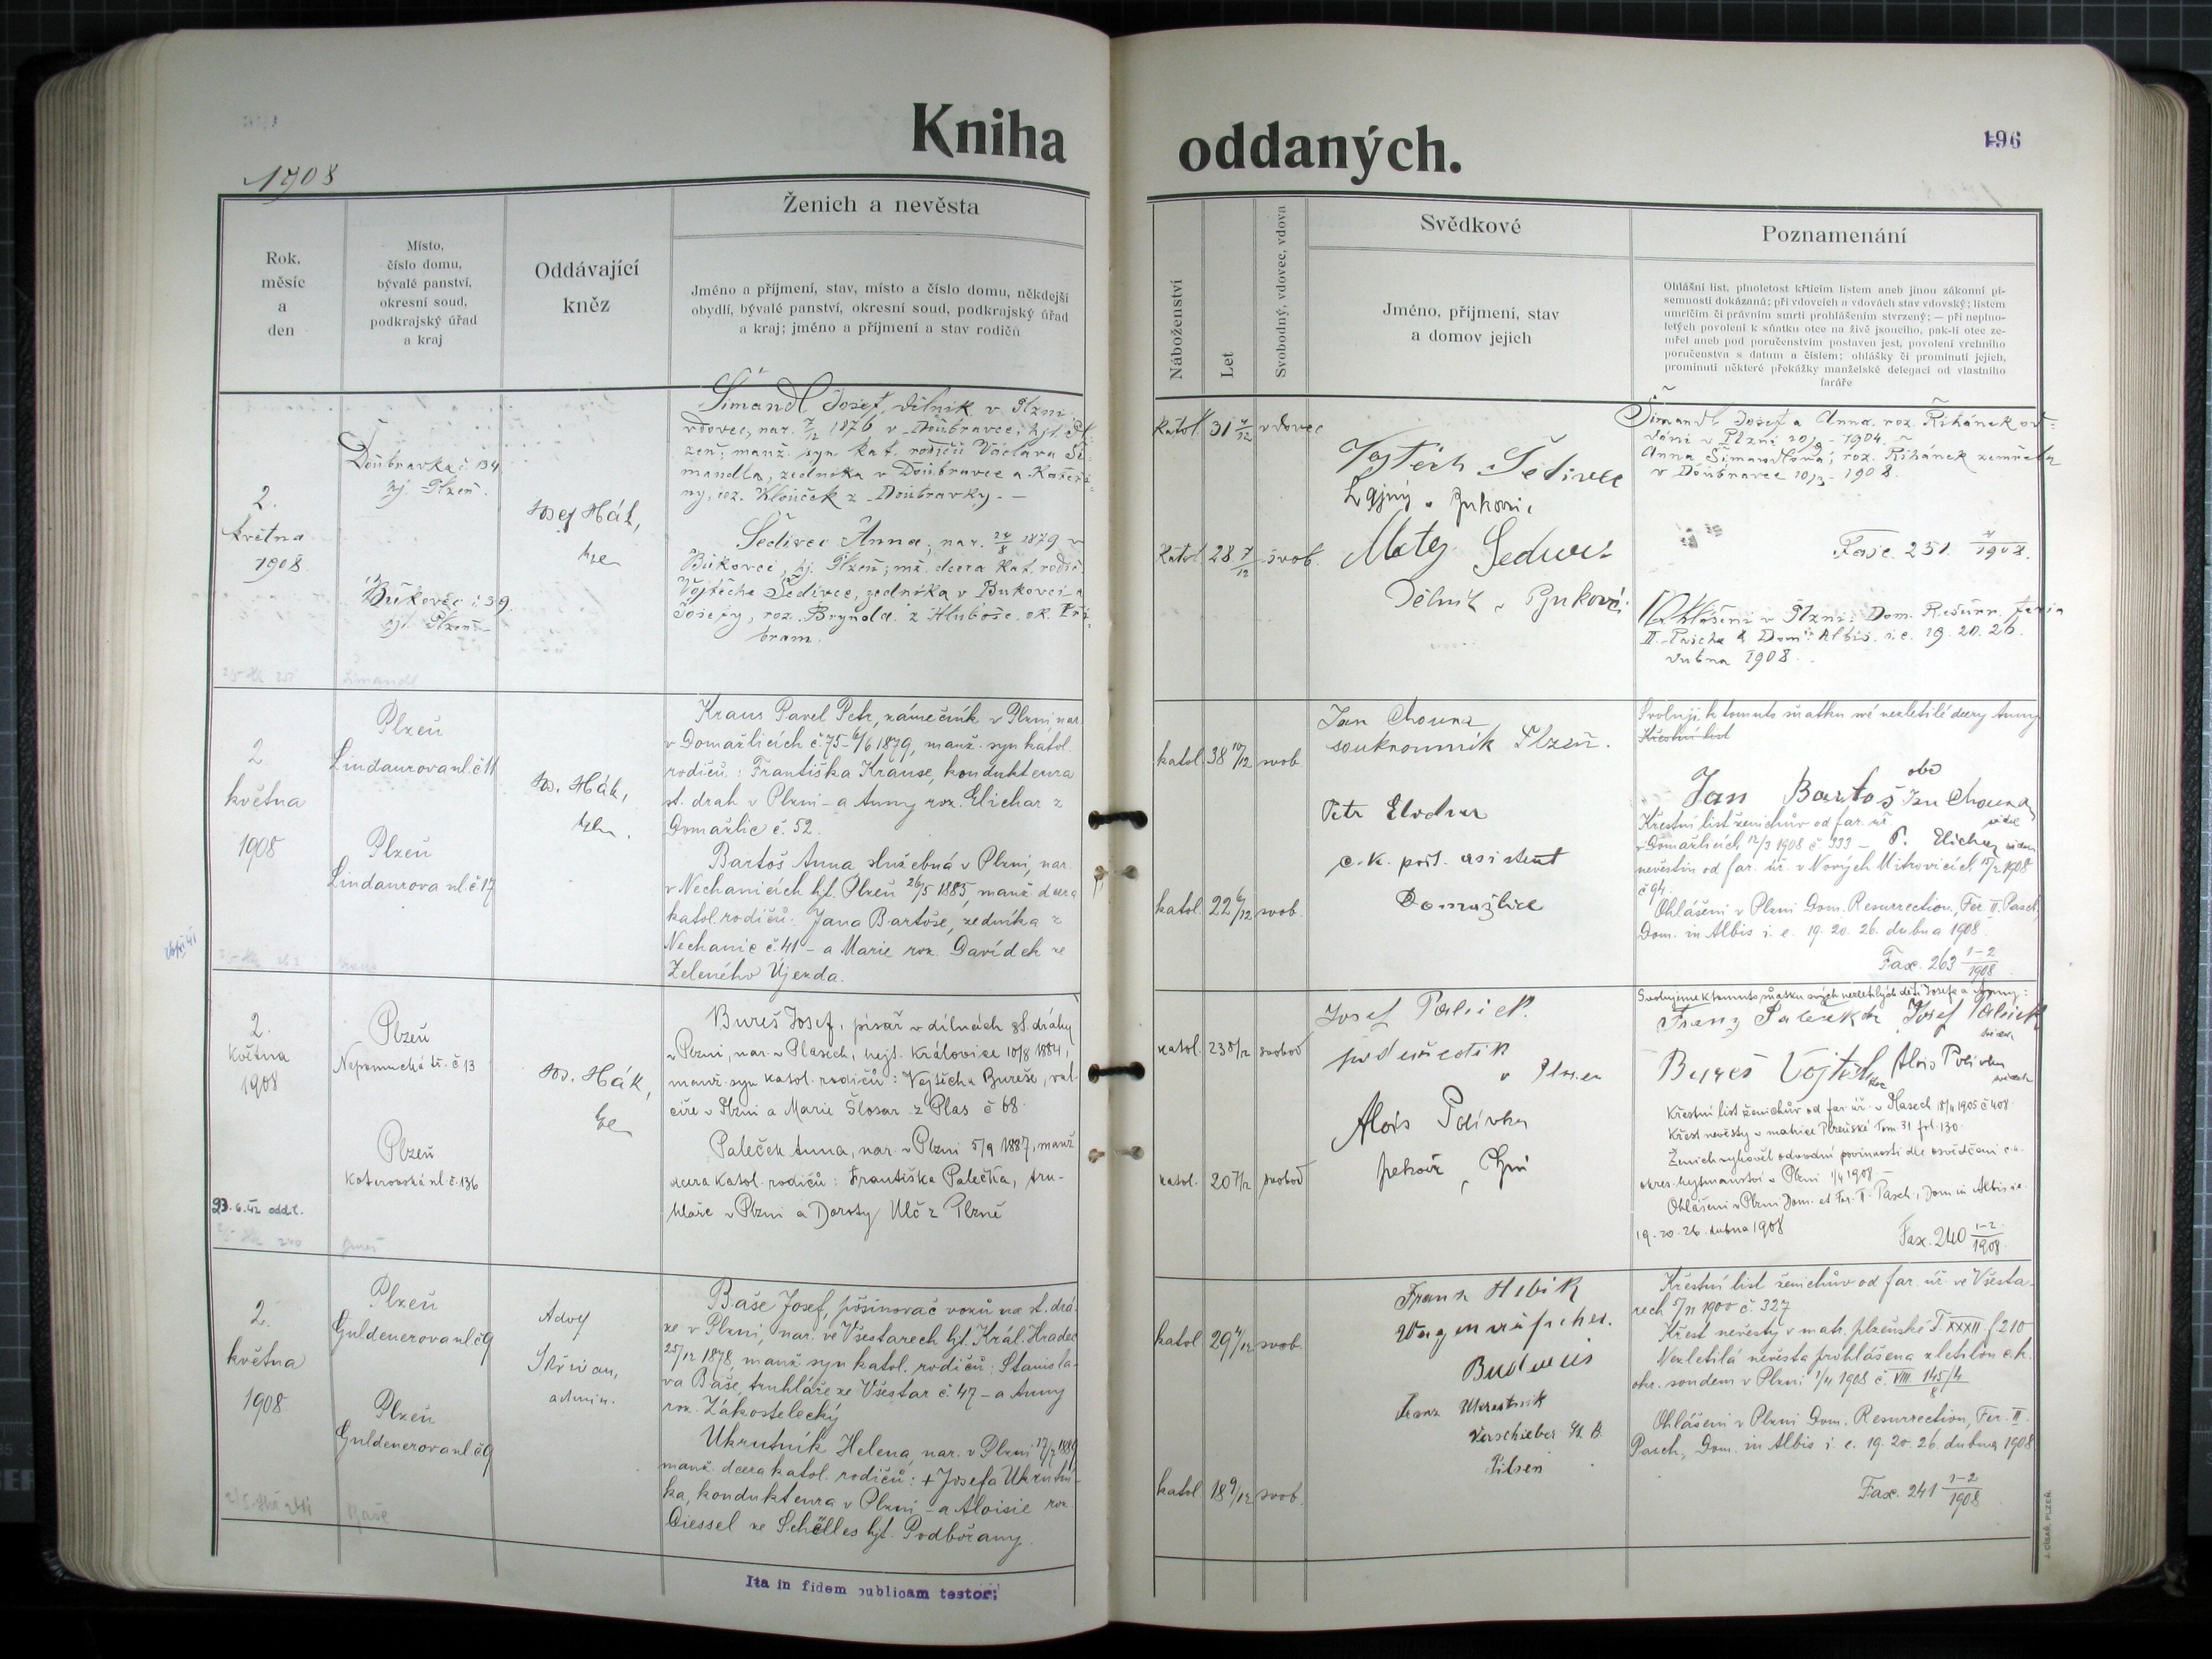 Kniha
oddaných.
196
1908
Rok,
měsíc
a
den
Místo,
číslo domu,
bývalé panství,
okresní soud,
podkrajský úřad
a kraj
Oddávající
kněz
Ženich a nevěsta
Jméno a příjmení, stav, místo a číslo domu, někdejší
obydlí, bývalé panství, okresní soud, podkrajský úřad
a kraj; jméno a příjmení a stav rodičů
Náboženství
Let
Svobodný, vdovec, vdova
Svědkové
Jméno, příjmení, stav
a domov jejich
Poznamenání
Ohlášní list, plnoletost křticím listem aneb jinou zákonní pí-
semností dokázaná; při vdovcích a vdovách stav vdovský; listem
umrlčím či právním smrti prohlášením stvrzený; — při neplno-
letých povolení k sňatku otce na živě jsoucího, pak-li otec ze-
mřel aneb pod poručenstvím postaven jest, povolení vrchního
poručenstva s datum a číslem; ohlášky či prominutí jejich,
prominutí některé překážky manželské delegací od vlastního
faráře
2.
května
1908.
Doubravka č. 134
hj. Plzeň.
Bukovec č. 39.
hj. Plzeň
Josef Hák,
Šimandl Josef, dělník v Plzni
vdovec, nar. 7/12 1876 v Doubravce, hjt. Pl-
zeň; manž. syn kat. rodičů Václava Ši-
mandla, zedníka v Doubravce a Kateři-
ny, roz. Klouček z Doubravky. —
Šedivec Anna, nar. 24/8 1879 v
Bukovci, hj. Plzeň; mž. dcera kat. rodičů
Vojtěcha Šedivce, zedníka v Bukovci a
Josefy, roz. Brynda z Hluboše, ok. Pří-
bram.
katol. 31 vdovec
katol. 28 svob.
Vojtěch Šedivec
Matěj Šedivec
Dělník v Bukovci
Šimandl Josef a Anna roz. Řihánek od-
dáni v Plzni 1904.
Anna Šimandlová, roz. Řihánek zemřela
v Doubravce 10/3 1908.
Fasc. 251. 1908.
Ohlášeni v Plzni: Dom. Resurr. feria
II. Pascha & Dom. Albis. i. e. 19. 20. 26.
dubna 1908.
2
května
1908
Plzeň
Lindaurova ul. č. 11
Plzeň
Lindaurova ul. č. 17
Jos. Hák,
Kraus Pavel Petr, zámečník v Plzni, nar.
v Domažlicích č. 75 - 6/6 1879, manž. syn katol.
rodičů: Františka Krause, kondukteura
st. drah v Plzni - a Anny roz. Elichar z
Domažlic č. 52.
Bartoš Anna, služebná v Plzni, nar.
v Nechanicích hjt. Plzeň 26/5 1885, manž. dcera
katol. rodičů: Jana Bartoše, zedníka z
Nechanic č. 41 - a Marie roz. Davídek ze
Zeleného Újezda.
katol. 38 10/12 svob.
katol. 22 svob.
Jan Chouna
soukromník Plzeň.
Petr
c. k. pošt. asistent
Domažlice
Svoluji k tomuto sňatku mé nezletilé dcery Anny
Křestní list
Jan Bartoš Jan Chouna
Křestní list ženichův od far. úř.
v Domažlicích 12/3 1908 č. 333 —
nevěstin od far. úř. v Nových Mitrovicích 15/2 1908
č. 94.
Ohlášeni v Plzni Dom. Resurrection, Fer. II. Pasch,
Dom. in Albis i. e. 19. 20. 26. dubna 1908.
Fasc. 263 1-2/1908
2.
května
1908
Plzeň
Nepomucká tř. č. 13
Plzeň
Koterovská ul. č. 136
Jos. Hák,
Bureš Josef, písař v dílnách st. dráhy
v Plzni, nar. v Plasech, hejt. Kralovice 10/8 1884,
manž. syn katol. rodičů: Vojtěcha Bureše, val-
cíře v Plzni a Marie Šlosar z Plas č 68.
Paleček Anna, nar. v Plzni 5/9 1887, manž
dcera katol. rodičů: Františka Palečka, tru-
hláře v Plzni a Doroty Ulč z Plzně
23.6.42 odd. l.
katol. 23 8/12 svobod
katol. 20 7/12 svobod
Josef Paleček
v Plzni
Alois Polívka
pekař, Plzni
Svolujeme k tomuto sňatku svých nezletilých dětí Josefa a Anny:
Franz Paleček Josef Paleček
Bureš Vojtěch Alois Polívka
Křestní list ženichův od far. úř. v Plasech 18/11 1905 č 408.
Křest nevěsty v matrice Plzeňské Tom 31 fol. 130.
Ženich vyhověl odvodní povinnosti dle osvědčení c. k.
okres. hejtmanství v Plzni 1/4 1908 —
Ohlášeni v Plzni Dom. et Fer. II. Pasch, Dom in Albis i. e.
19. 20. 26. dubna 1908
Fasc. 240 1-2/1908
2.
května
1908
Plzeň
Guldenerova ul. č 9
Plzeň
Guldenerova ul. č 9
Adolf
Skřivan,
admin.
Baše Josef, pošinovač vozů na st. drá-
ze v Plzni, nar. ve Všestarech hjt. Král. Hradec
25/12 1878, manž. syn katol. rodičů: Stanisla-
va Baše, truhláře ze Všestar č. 47 - a Anny
roz. Zákostelecký
Ukrutník Helena, nar. v Plzni 17/7 1889
manž. dcera katol. rodičů: + Josefa Ukrutní-
ka, kondukteura v Plzni - a Aloisie roz.
Diessel ze Schelles hjt. Podbořany.
katol. 29 4/12 svob.
katol. 18 9/12 svob.
Franz
Wagenaufseher.
Budweis
Franz Ukrutnik
Verschieber St. B.
Pilsen
Křestní list ženichův od far. úř. ve Všesta-
rech 5/11 1900 č. 327
Křest nevěsty v matr. plzeňské T. XXXII. f 210
Nezletilá nevěsta prohlášena zletilou c. k.
okr. soudem v Plzni 1/4 1908 č. VIII 145/4
8
Ohlášeni v Plzni Dom. Resurrection, Fer. II.
Pasch, Dom. in Albis i. e. 19. 20. 26. dubna 1908
Fasc. 241 1-2/1908
Ita in fidem publicam testor:
J. CÍSAŘ, PLZEŇ.